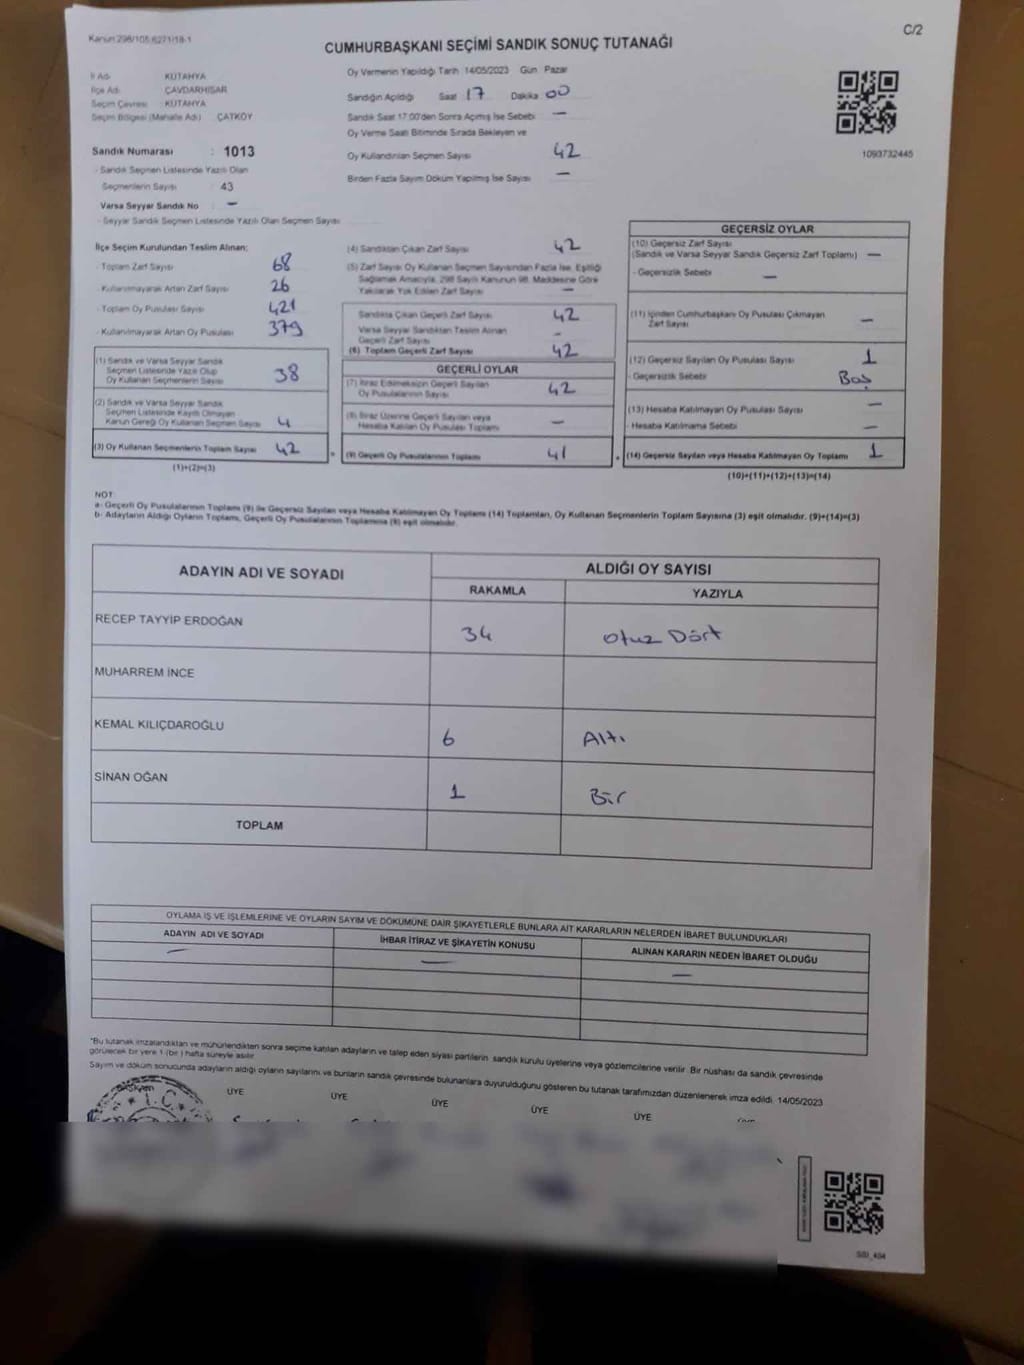 Kanun 298/105 6271/18-1
C/2
CUMHURBAŞKANI SEÇİMİ SANDIK SONUÇ TUTANAĞI
İl Adı : KÜTAHYA
İlçe Adı : ÇAVDARHİSAR
Seçim Çevresi : KÜTAHYA
Seçim Bölgesi (Mahalle Adı) ÇATKÖY
Sandık Numarası : 1013
- Sandık Seçmen Listesinde Yazılı Olan
Seçmenlerin Sayısı : 43
Varsa Seyyar Sandık No : —
- Seyyar Sandık Seçmen Listesinde Yazılı Olan Seçmen Sayısı
Oy Vermenin Yapıldığı Tarih 14/05/2023 Gün Pazar
Sandığın Açıldığı Saat 17 Dakika 00
Sandık Saat 17:00'den Sonra Açımış İse Sebebi —
Oy Verme Saati Bitiminde Sırada Bekleyen ve
Oy Kullandırılan Seçmen Sayısı 42
Birden Fazla Sayım Döküm Yapılmış İse Sayısı —
1093732445
İlçe Seçim Kurulundan Teslim Alınan:
- Toplam Zarf Sayısı 68
- Kullanılmayarak Artan Zarf Sayısı 26
- Toplam Oy Pusulası Sayısı 421
- Kullanılmayarak Artan Oy Pusulası 379
(1) Sandık ve Varsa Seyyar Sandık
Seçmen Listesinde Yazılı Olup
Oy Kullanan Seçmenlerin Sayısı 38
(2) Sandık ve Varsa Seyyar Sandık
Seçmen Listesinde Kayıtlı Olmayan
Kanun Gereği Oy Kullanan Seçmen Sayısı 4
(3) Oy Kullanan Seçmenlerin Toplam Sayısı 42
(1)+(2)=(3)
(4) Sandıktan Çıkan Zarf Sayısı 42
(5) Zarf Sayısı Oy Kullanan Seçmen Sayısından Fazla İse, Eşitliği
Sağlamak Amacıyla, 298 Sayılı Kanunun 98. Maddesine Göre
Yakılarak Yok Edilen Zarf Sayısı —
Sandıkta Çıkan Geçerli Zarf Sayısı 42
Varsa Seyyar Sandıktan Teslim Alınan
Geçerli Zarf Sayısı -
(6) Toplam Geçerli Zarf Sayısı 42
GEÇERLİ OYLAR
(7) İtiraz Edilmeksizin Geçerli Sayılan
Oy Pusulalarının Sayısı 42
(8) İtiraz Üzerine Geçerli Sayılan veya
Hesaba Katılan Oy Pusulası Toplamı —
= (9) Geçerli Oy Pusulalarının Toplamı 41
GEÇERSİZ OYLAR
(10) Geçersiz Zarf Sayısı
(Sandık ve Varsa Seyyar Sandık Geçersiz Zarf Toplamı) —
- Geçersizlik Sebebi —
(11) İçinden Cumhurbaşkanı Oy Pusulası Çıkmayan
Zarf Sayısı —
(12) Geçersiz Sayılan Oy Pusulası Sayısı 1
- Geçersizlik Sebebi Boş
(13) Hesaba Katılmayan Oy Pusulası Sayısı —
- Hesaba Katılmama Sebebi —
+ (14) Geçersiz Sayılan veya Hesaba Katılmayan Oy Toplamı 1
(10)+(11)+(12)+(13)=(14)
NOT:
a- Geçerli Oy Pusulalarının Toplamı (9) ile Geçersiz Sayılan veya Hesaba Katılmayan Oy Toplamı (14) Toplamları, Oy Kullanan Seçmenlerin Toplam Sayısına (3) eşit olmalıdır. (9)+(14)=(3)
b- Adayların Aldığı Oyların Toplamı, Geçerli Oy Pusulalarının Toplamına (9) eşit olmalıdır.
ADAYIN ADI VE SOYADI
ALDIĞI OY SAYISI
RAKAMLA YAZIYLA
RECEP TAYYİP ERDOĞAN 34 Otuz Dört
MUHARREM İNCE
KEMAL KILIÇDAROĞLU 6 Altı
SİNAN OĞAN 1 Bir
TOPLAM
OYLAMA İŞ VE İŞLEMLERİNE VE OYLARIN SAYIM VE DÖKÜMÜNE DAİR ŞİKAYETLERLE BUNLARA AİT KARARLARIN NELERDEN İBARET BULUNDUKLARI
ADAYIN ADI VE SOYADI İHBAR İTİRAZ VE ŞİKAYETİN KONUSU ALINAN KARARIN NEDEN İBARET OLDUĞU
— — —
*Bu tutanak imzalandıktan ve mühürlendikten sonra seçime katılan adayların ve talep eden siyasi partilerin sandık kurulu üyelerine veya gözlemcilerine verilir. Bir nüshası da sandık çevresinde
görülecek bir yere 1 (bir) hafta süreyle asılır
Sayım ve döküm sonucunda adayların aldığı oyların sayılarını ve bunların sandık çevresinde bulunanlara duyurulduğunu gösteren bu tutanak tarafımızdan düzenlenerek imza edildi. 14/05/2023
BAŞKAN ÜYE ÜYE ÜYE ÜYE ÜYE
T.C.